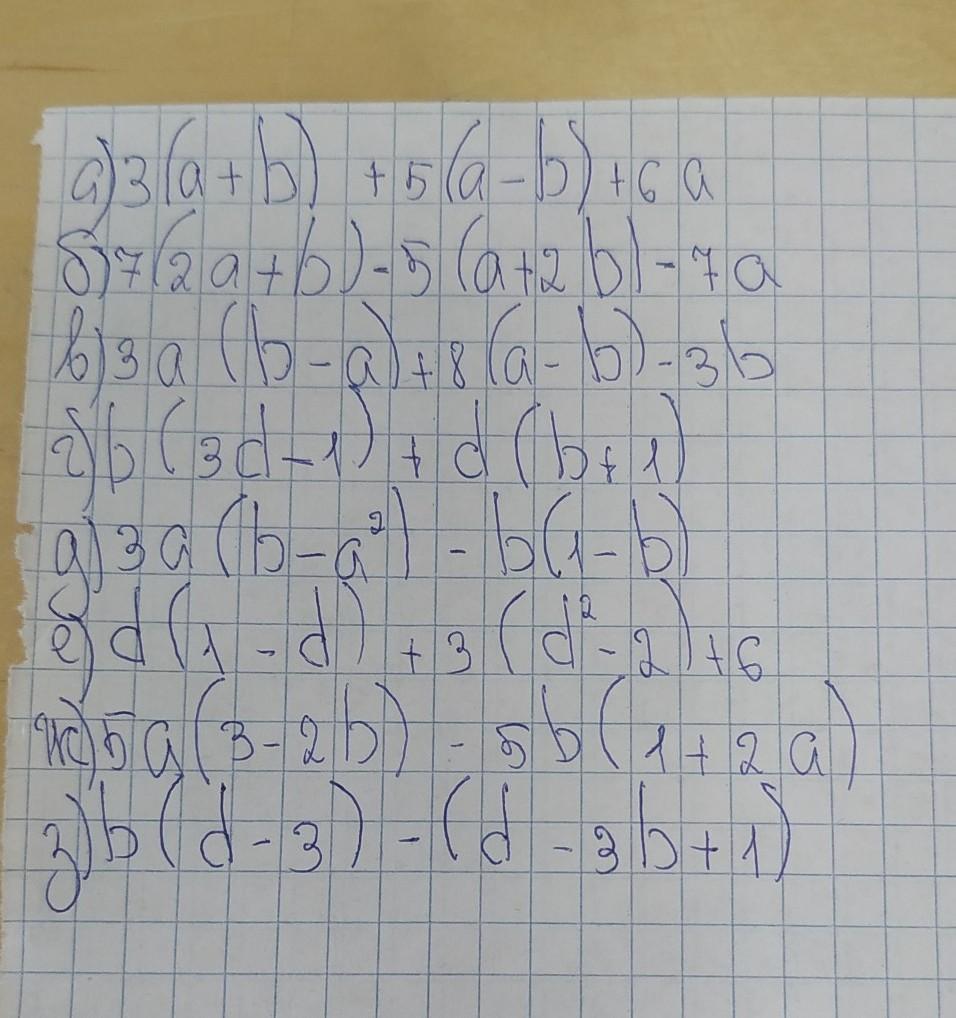 а) 3(a+b) +5(a-b)+6a
б) 7(2a+b)-5(a+2b)-7a
в) 3a(b-a)+8(a-b)-3b
г) b(3d-1)+d(b+1)
д) 3a(b-a²)-b(1-b)
е) d(1-d)+3(d²-2)+6
ж) 5a(3-2b)-5b(1+2a)
з) b(d-3)-(d-3b+1)